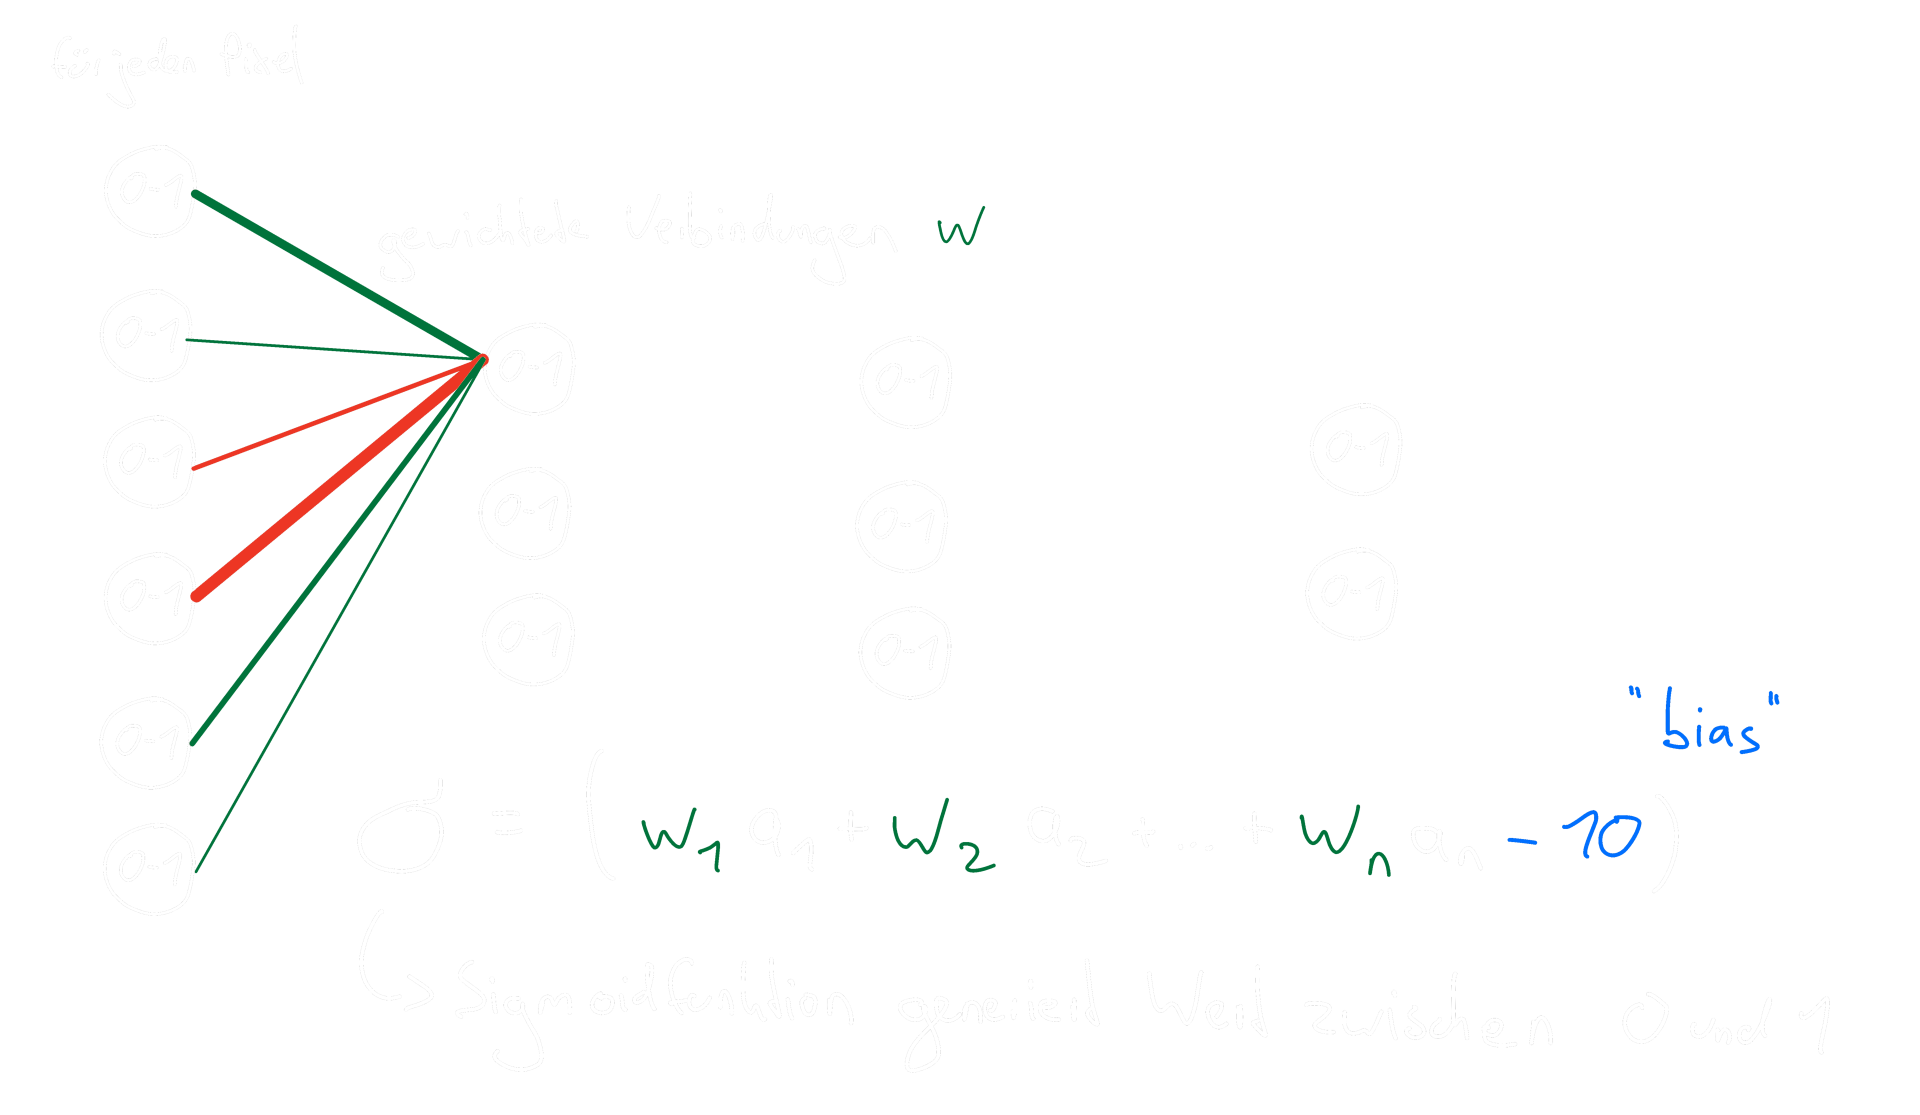 für jeden Pixel
0-1
gewichtete Verbindungen w
0-1
0-1
0-1
0-1
0-1
0-1
0-1
0-1
0-1
0-1
0-1
0-1
0-1
"bias"
σ = ( w₁ a₁ + w₂ a₂ + ... + wₙ aₙ - 10 )
↳ Sigmoidfunktion generiert Wert zwischen 0 und 1